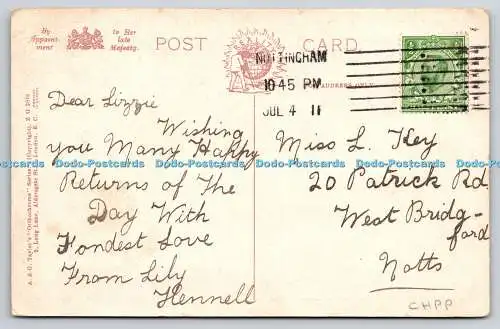 By
Appoint-
ment
to Her
late
Majesty.
POST CARD
NOTTINGHAM
10.45 PM
JUL 4 11
ADDRESS ONLY
Dear Lizzie
Wishing
you Many Happy
Returns of The
Day With
Fondest Love
From Lily
Hennell
Miss L. Key
20 Patrick Rd
West Bridg-
ford
Notts
CHPP
Dodo-Postcards Dodo-Postcards Dodo-Postcards Dodo-Postcards Dodo-Postcards Dodo-Postcards